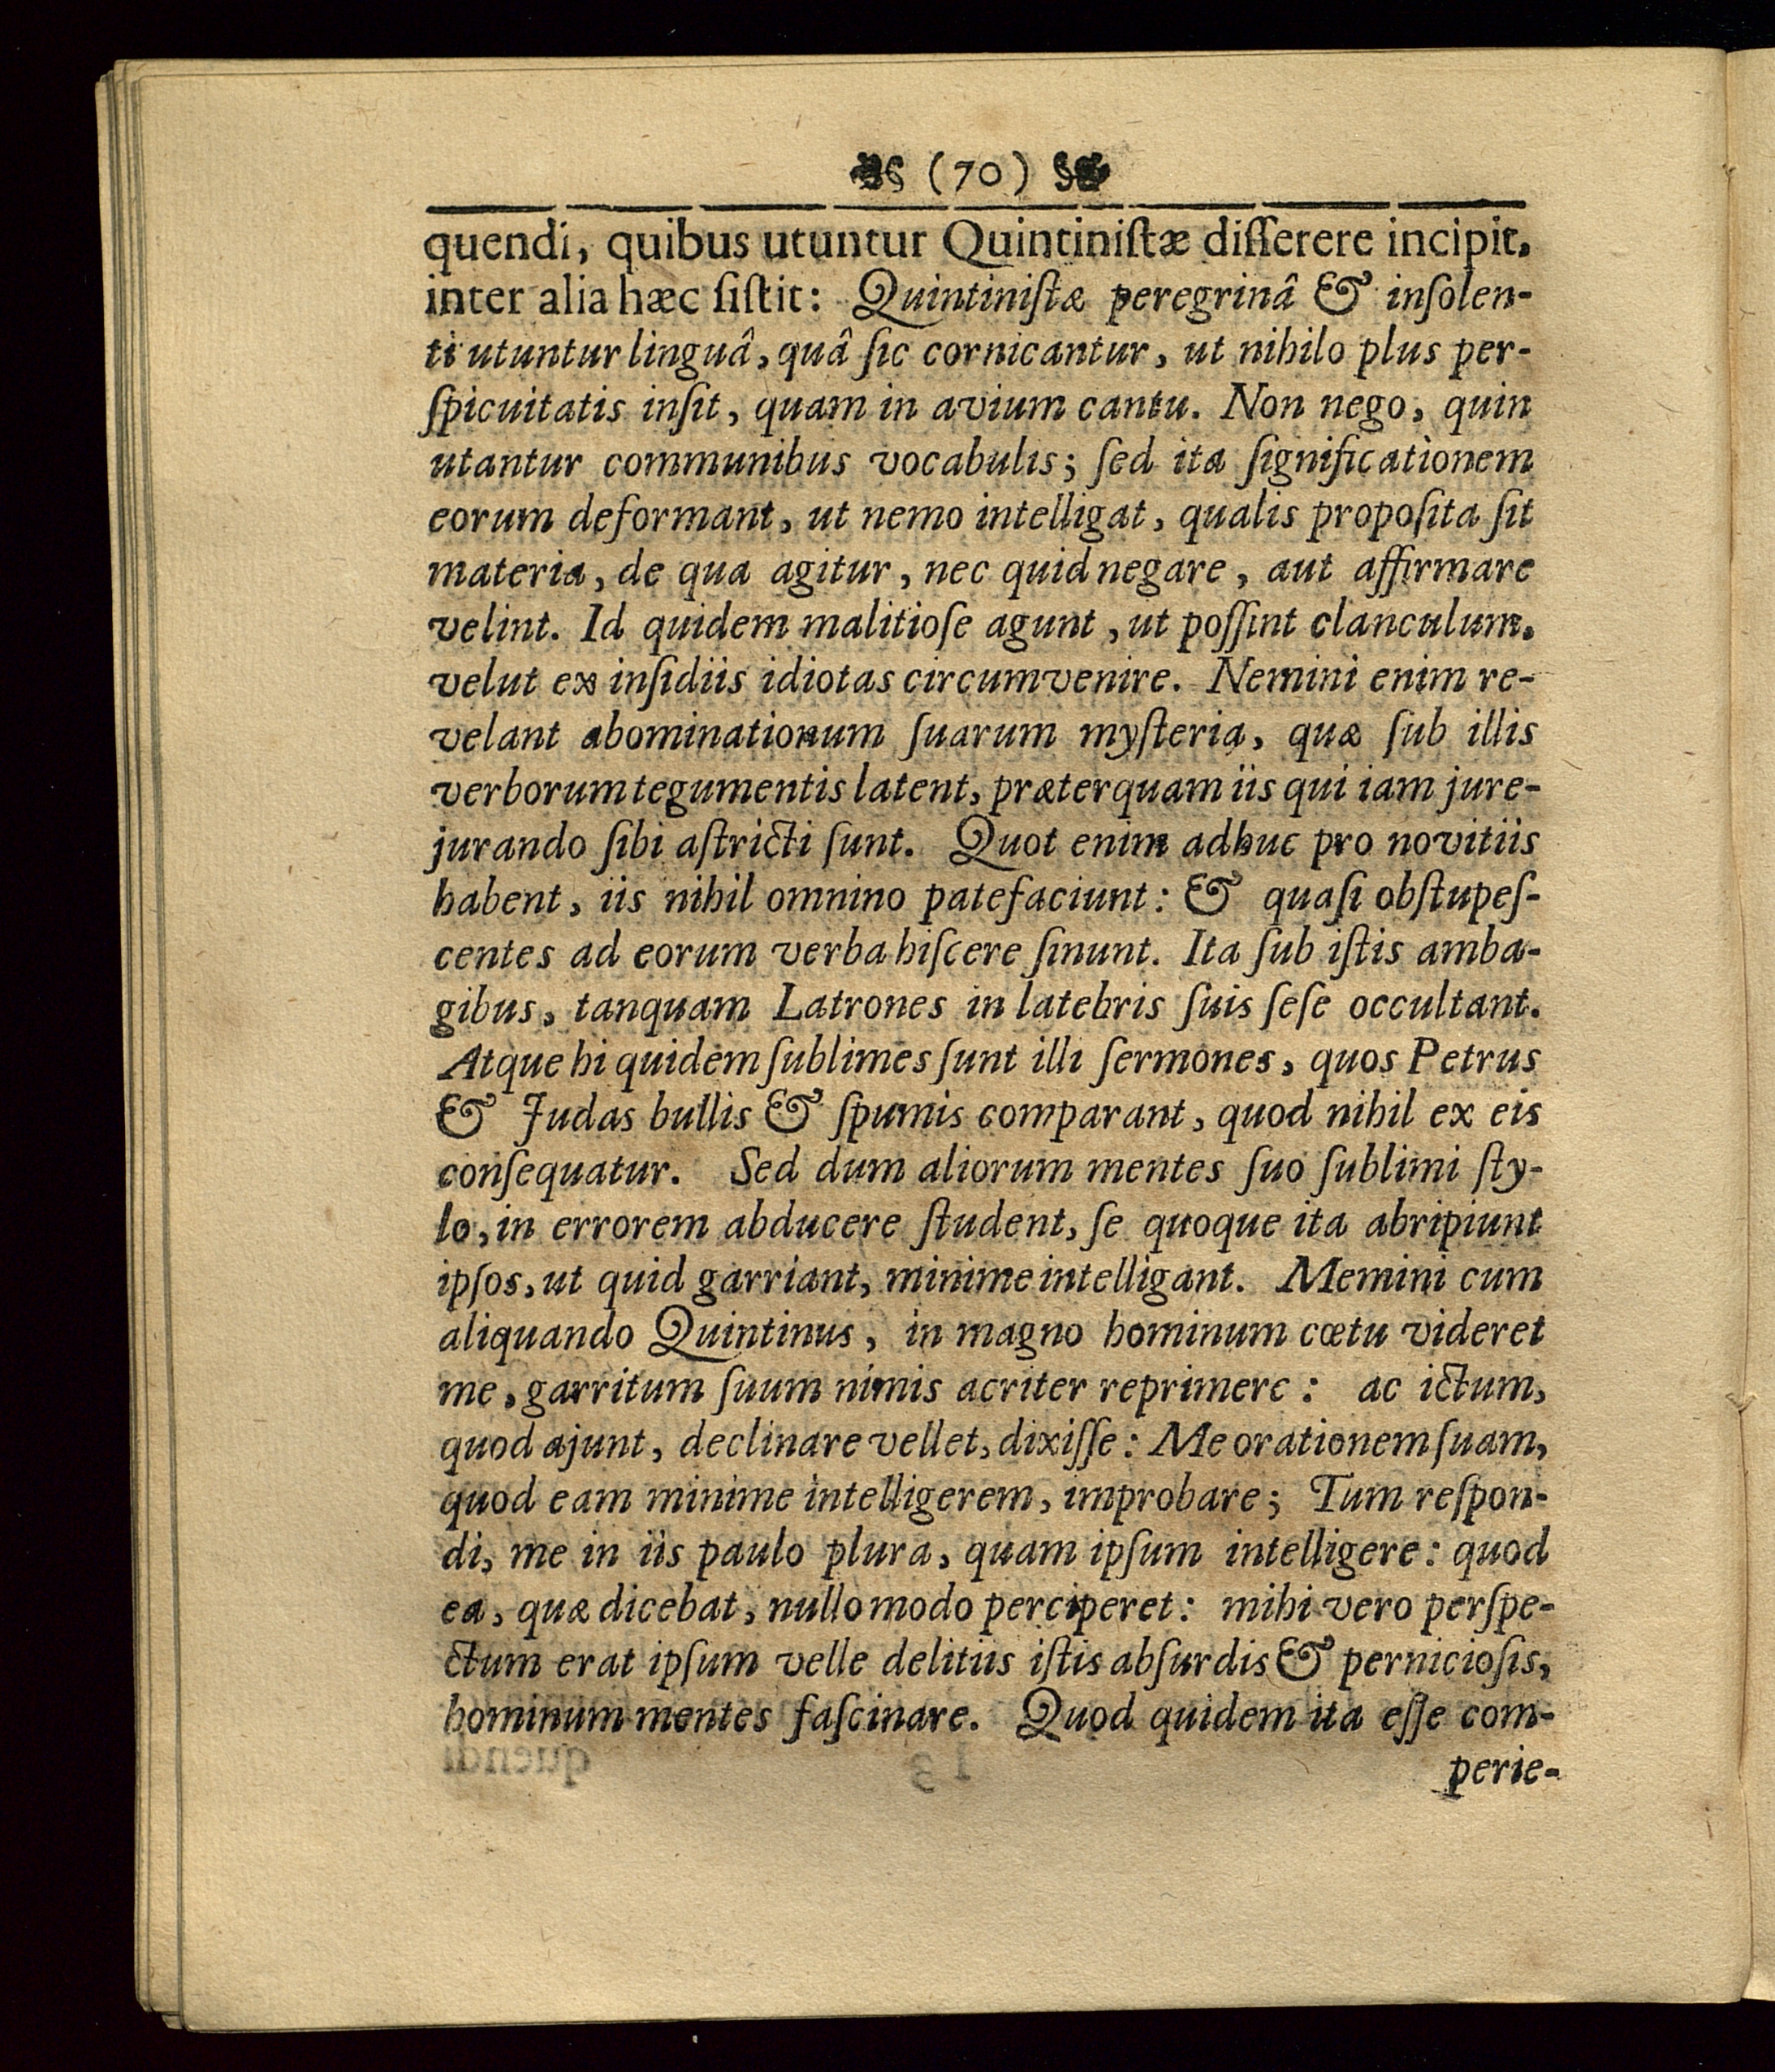 (70)
quendi, quibus utuntur Quintiniſtæ diſſerere incipit,
inter alia hæc ſiſtit: Quintiniſtæ peregrinâ & inſolen-
ti utuntur linguâ, quâ ſic cornicantur, ut nihilo plus per-
ſpicuitatis inſit, quam in avium cantu. Non nego, quin
utantur communibus vocabulis; ſed ita ſignificationem
eorum deformant, ut nemo intelligat, qualis propoſita ſit
materia, de qua agitur, nec quid negare, aut affirmare
velint. Id quidem malitioſe agunt, ut poſſint clanculum,
velut ex inſidiis idiotas circumvenire. Nemini enim re-
velant abominationum ſuarum myſteria, quæ ſub illis
verborum tegumentis latent, præterquam iis qui iam jure-
jurando ſibi aſtricti ſunt. Quot enim adhuc pro novitiis
habent, iis nihil omnino patefaciunt: & quaſi obſtupeſ-
centes ad eorum verba hiſcere ſinunt. Ita ſub iſtis amba-
gibus, tanquam Latrones in latebris ſuis ſeſe occultant.
Atque hi quidem ſublimes ſunt illi ſermones, quos Petrus
& Judas bullis & ſpumis comparant, quod nihil ex eis
conſequatur. Sed dum aliorum mentes ſuo ſublimi ſty-
lo, in errorem abducere ſtudent, ſe quoque ita abripiunt
ipſos, ut quid garriant, minime intelligant. Memini cum
aliquando Quintinus, in magno hominum cœtu videret
me, garritum ſuum nimis acriter reprimere: ac ictum,
quod ajunt, declinare vellet, dixiſſe: Me orationem ſuam,
quod eam minime intelligerem, improbare; Tum reſpon-
di, me in iis paulo plura, quam ipſum intelligere: quod
ea, quæ dicebat, nullo modo perciperet: mihi vero perſpe-
ctum erat ipſum velle delitiis iſtis abſurdis & pernicioſis,
hominum mentes faſcinare. Quod quidem ita eſſe com-
perie-